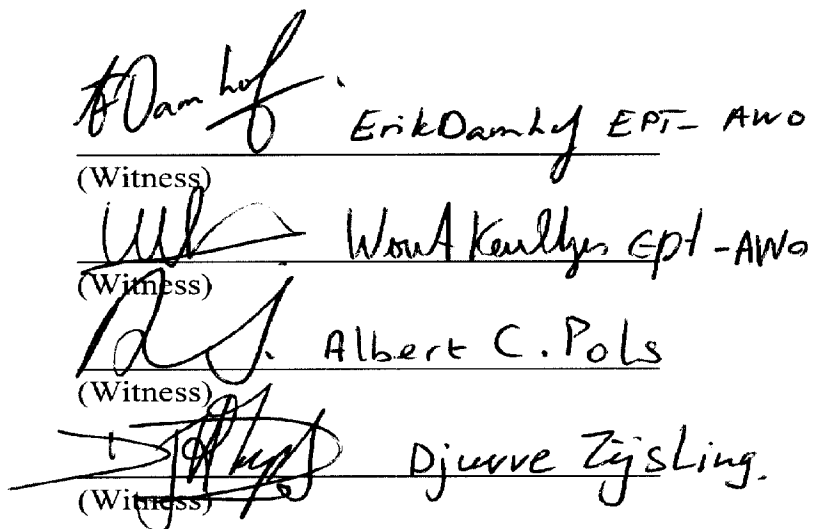 EDamhof. Erik Damhof EPT- AWO
(Witness)
Wout EPT-AWO
(Witness)
Albert C. Pols
(Witness)
Djurre Zijsling.
(Witness)